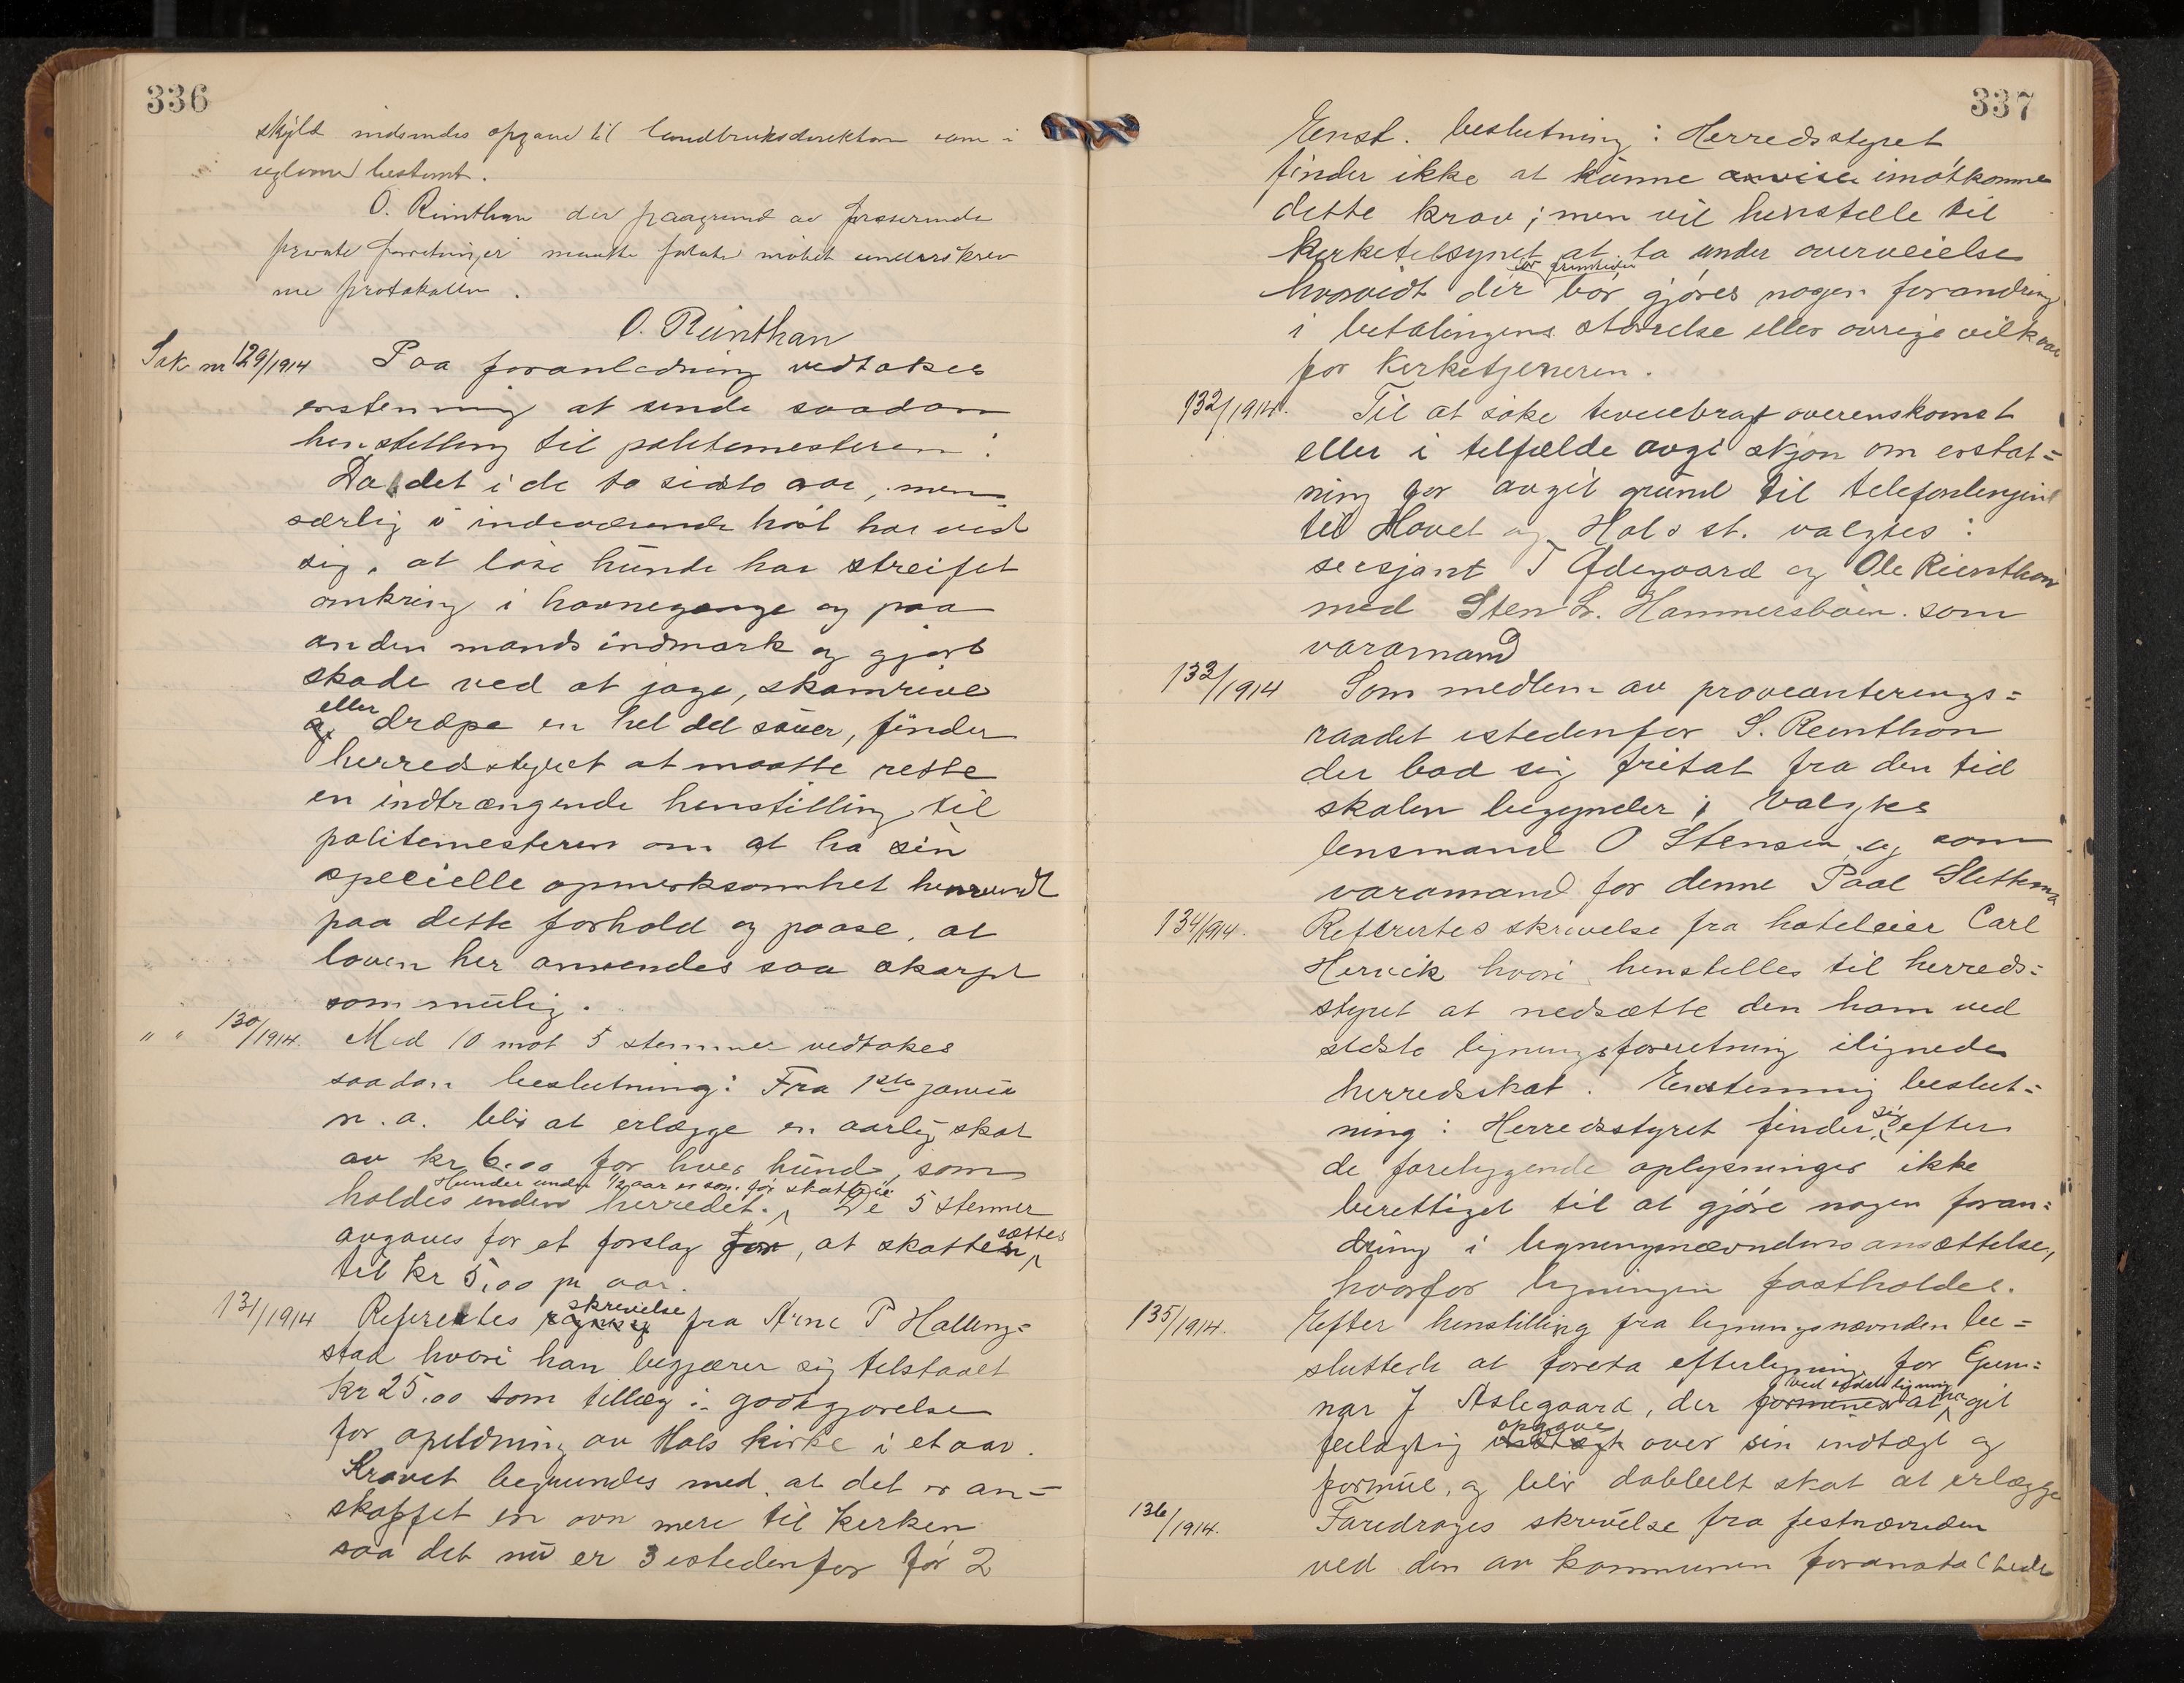 336
skyld indsendes opgave til landbruksdirektøren som i
reglerne bestemt.
O. Reinthon der paagrund av presserende
private forretninger maatte forlate møtet underskrev
nu protokollen.
O. Reinthon
Sak nr 129/1914 Paa foranledning vedtokes
enstemmig at sende saadan
henstelling til politimesteren:
Da det i de to sidste aar, men
særlig i indeværende høst har vist
sig, at løse hunde har streifet
omkring i havnegange og paa
anden mands indmark og gjort
skade ved at jage, skamrive
eller
og dræpe en hel del sauer, finder
herredsstyret at maatte rette
en indtrængende henstilling til
politimesteren om at ha sin
specielle opmerksomhet henvendt
paa dette forhold og paase, at
loven her anvendes saa skarpt
som mulig.
" " 130/1914. Med 10 mot 5 stemmer vedtokes
saadan beslutning: Fra 1ste januar
n. a. blir at erlægge en aarlig skat
av kr 6.00 for hver hund, som
Hunder under 1/2 aar er som før skattefri.
holdes inden herredet. De 5 stemmer
avgaves for et forslag for, at skatten sættes
til kr 5,00 pr aar.
131/1914 Refereertes skrivelse fra Arne P Halling=
stad hvori han begjærer sig tilstaaet
kr 25.00 som tillæg i godtgjørelse
for opeldning av Hols kirke i et aar.
Kravet begrundes med, at det er an=
skaffet en ovn mere til kirken
saa det nu er 3 istedenfor før 2
337
Enst. beslutning: Herredsstyret
finder ikke at kunne anvise imøtkomme
dette krav; men vil henstelle til
Kirketilsynet at ta under overveielse
for fremtiden
hvorvidt der bør gjøres nogen forandring
i betalingens størrelse eller øvrige vilkaar
for Kirketjeneren.
132/1914. Til at søke tveiebragt overenskomst
eller i tilfælde avgi skjøn om erstat=
ning for avgit grund til telefonlinjen
til Hovet og Hol st. valgtes:
sersjant T Ødegaard og Ole Reinthon
med Sten L. Hammersbøen som
varamand
133/1914 Som medlem av provianterings=
raadet istedenfor S. Reinthon
der bad sig fritat fra den tid
skolen begynder; valgtes
lensmand O Stensen og som
varamand for denne Paal Slettemo
134/1914. Refererertes skrivelse fra hoteleier Carl
Hervik hvori henstelles til herreds=
styret at nedsætte den ham ved
sidste ligningsforretning ilignede
herredsskat. Enstemmig beslut=
ning: Herredsstyret finder sig efter
de foreliggende oplysninger ikke
berettiget til at gjøre nogen foran=
dring i ligningsnævndens ansættelse,
hvorfor ligningen fastholdes.
135/1914. Efter henstilling fra ligningsnævnden be=
sluttedes at foreta efterligning for Gun=
ved sidste ligning
nar J Aslegaard, der formenes at ha git
opgave
feilagtig indtægt over sin indtægt og
formue, og blir dobbelt skat at erlægge
136/1914. Foredroges skrivelse fra festnævnden
ved den av kommunen foranstaltede